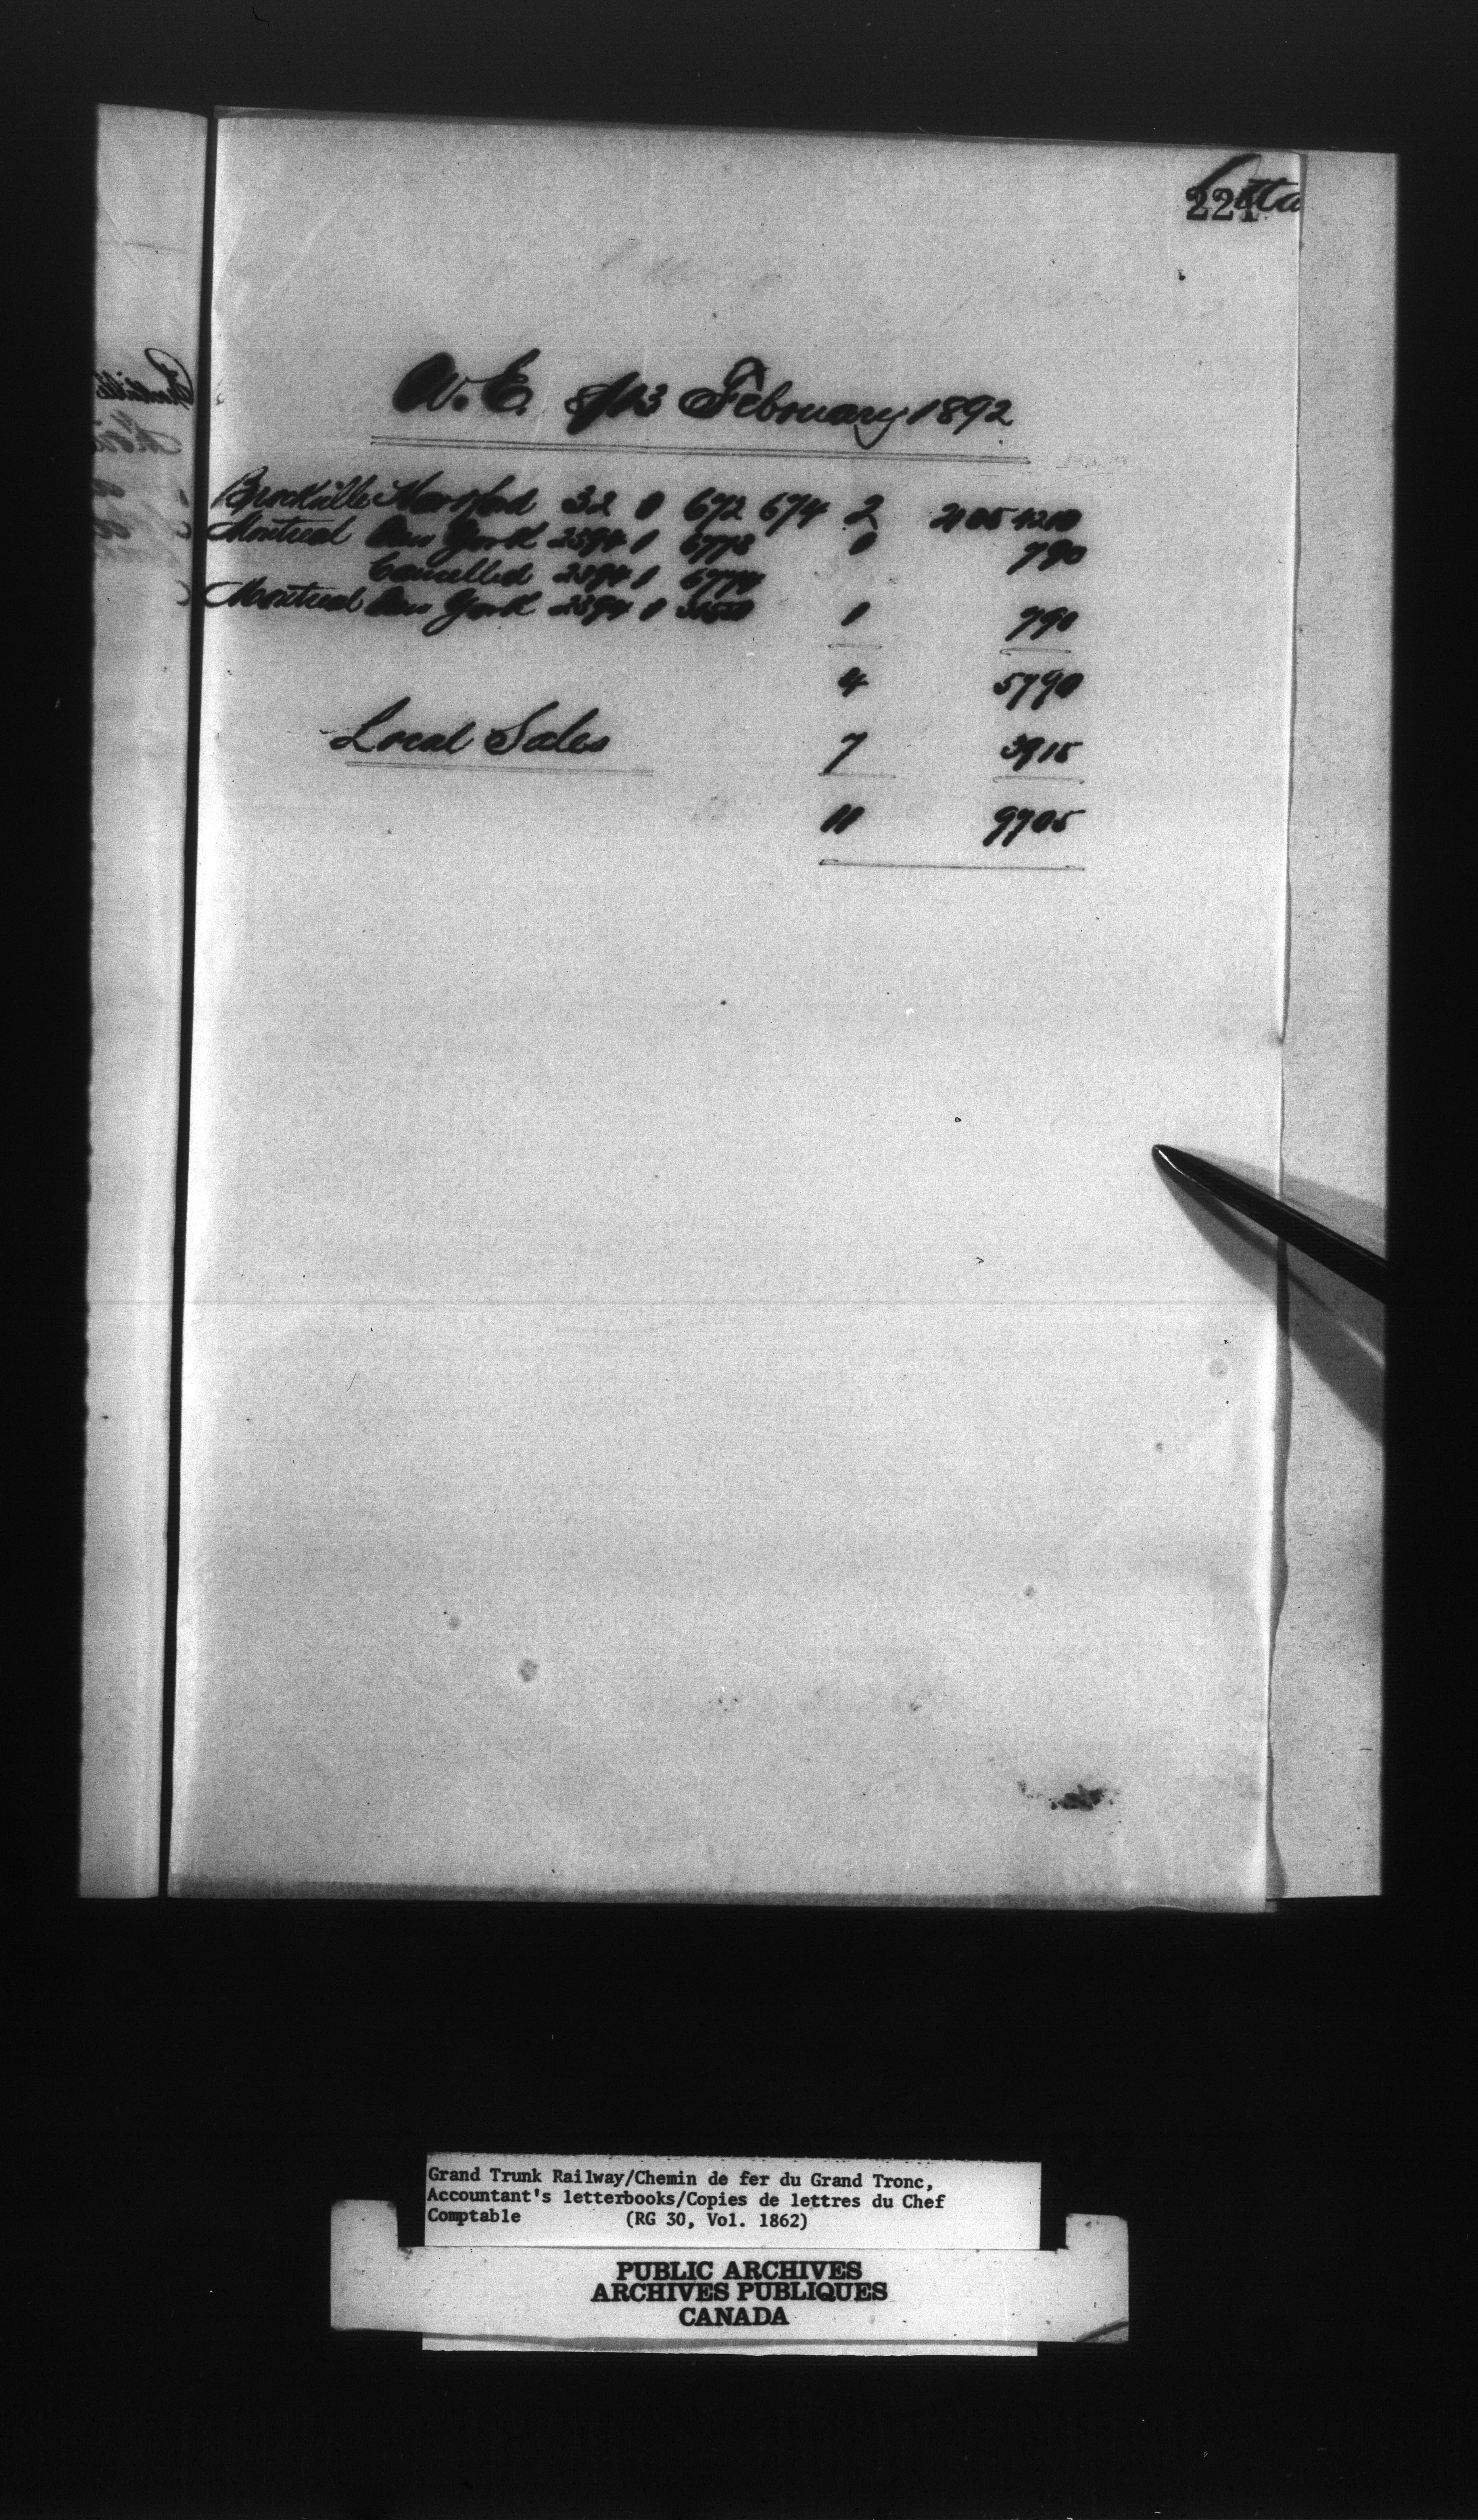 Otta
221
W.E. 8/13 February 1892
Brockville Hartford 32 0 672 674 2 2105 4210
Montreal New York 2394 1 6773 1 790
Cancelled 2394 1 6774
Montreal New York 2394 1 1 790
4 5790
Local Sales 7 3915
11 9705
Grand Trunk Railway/Chemin de fer du Grand Tronc,
Accountant's letterbooks/Copies de lettres du Chef
Comptable (RG 30, Vol. 1862)
PUBLIC ARCHIVES
ARCHIVES PUBLIQUES
CANADA